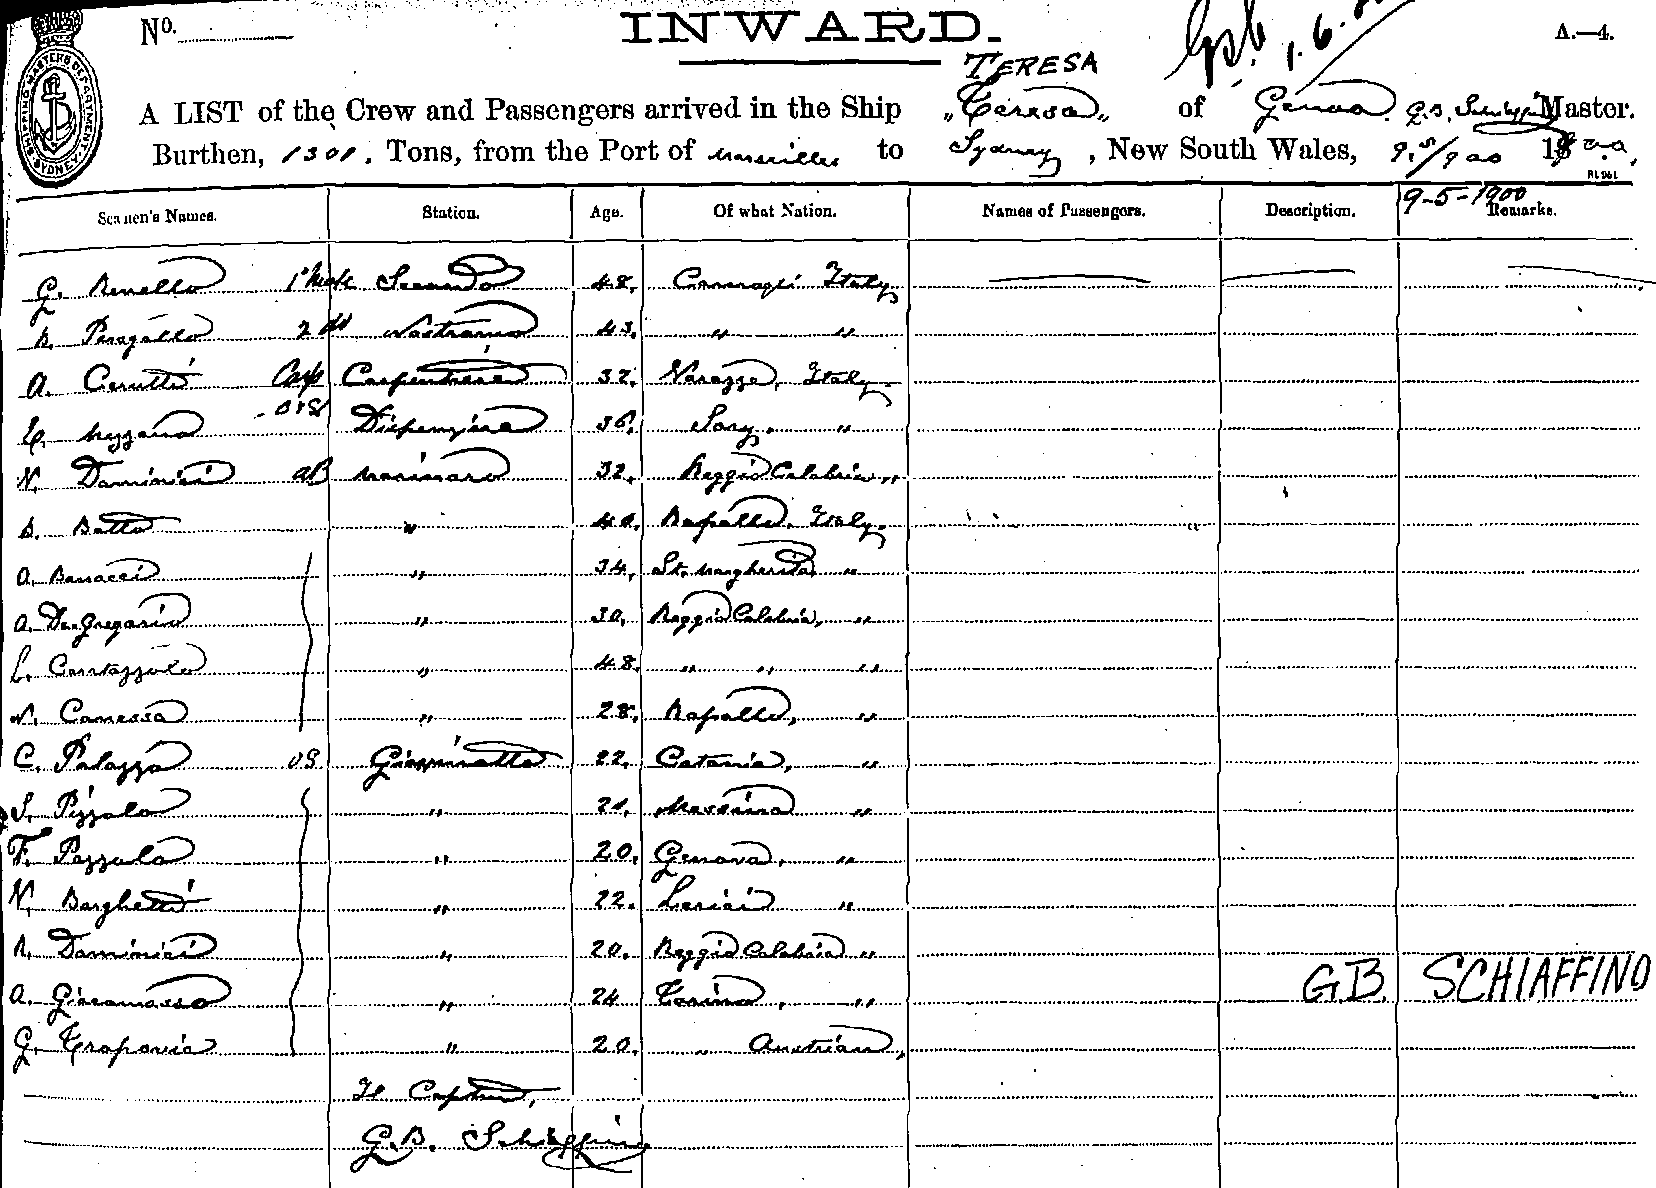 No. INWARD. A.—4.
TERESA
A LIST of the Crew and Passengers arrived in the Ship „Teresa„ of Genoa G.B. Schiaffino Master.
Burthen, 1301. Tons, from the Port of Marseilles to Sydney, New South Wales,
9-5-1900
Seamen's Names. Station. Age. Of what Nation. Names of Passengers. Description. Remarks.
G. 1st Mate Secondo 48. Camogli Italy
Peragallo 2 Nostromo 43. „ „
A. Cerutti Carp Carpentiere 32. Varazze, Italy.
Mezzano Dispensiere 36. Sory. „
N. Dominici AB Marinaro 32. Reggio Calabria „
Botto „ 40. Rapallo. Italy.
A. „ 34. St. Margherita „
A. De Gregorio „ 30. Reggio Calabria, „
„ 48. „ „ „
N. Canessa „ 28. Rapallo, „
C. Palazzo OS Giovinotto 22. Catania, „
S. Pizzolo „ 21. Messina „
F. Pezzolo „ 20. Genova, „
N. Borghetti „ 22. Lerici „
R. Dominici „ 20. Reggio Calabria „
A. Giacomasso „ 24 Torino, „
G. „ 20. „ Austrian,
GB. SCHIAFFINO
Il Capitano,
G.B. Schiaffino